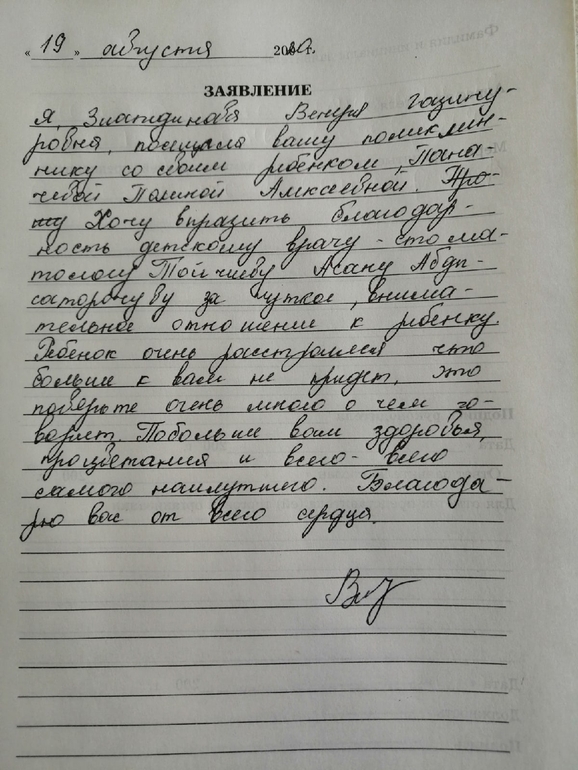 « 19 » августа 20 г.
ЗАЯВЛЕНИЕ
Я, Зиатдинова Венера
ровна, посещала вашу поликлин-
нику со своим ребенком,
Полиной Алексеевной. Про-
шу Хочу выразить благодар-
ность детскому врачу - стома-
тологу Асану
за чуткое, внима-
тельное отношение к ребенку.
Ребенок очень расстроился что
больше к вам не придет, это
поверьте очень много о чем го-
ворит. Побольше вам здоровья,
процветания и всего-всего
самого наилутшего. Благода-
рю вас от всего сердца.